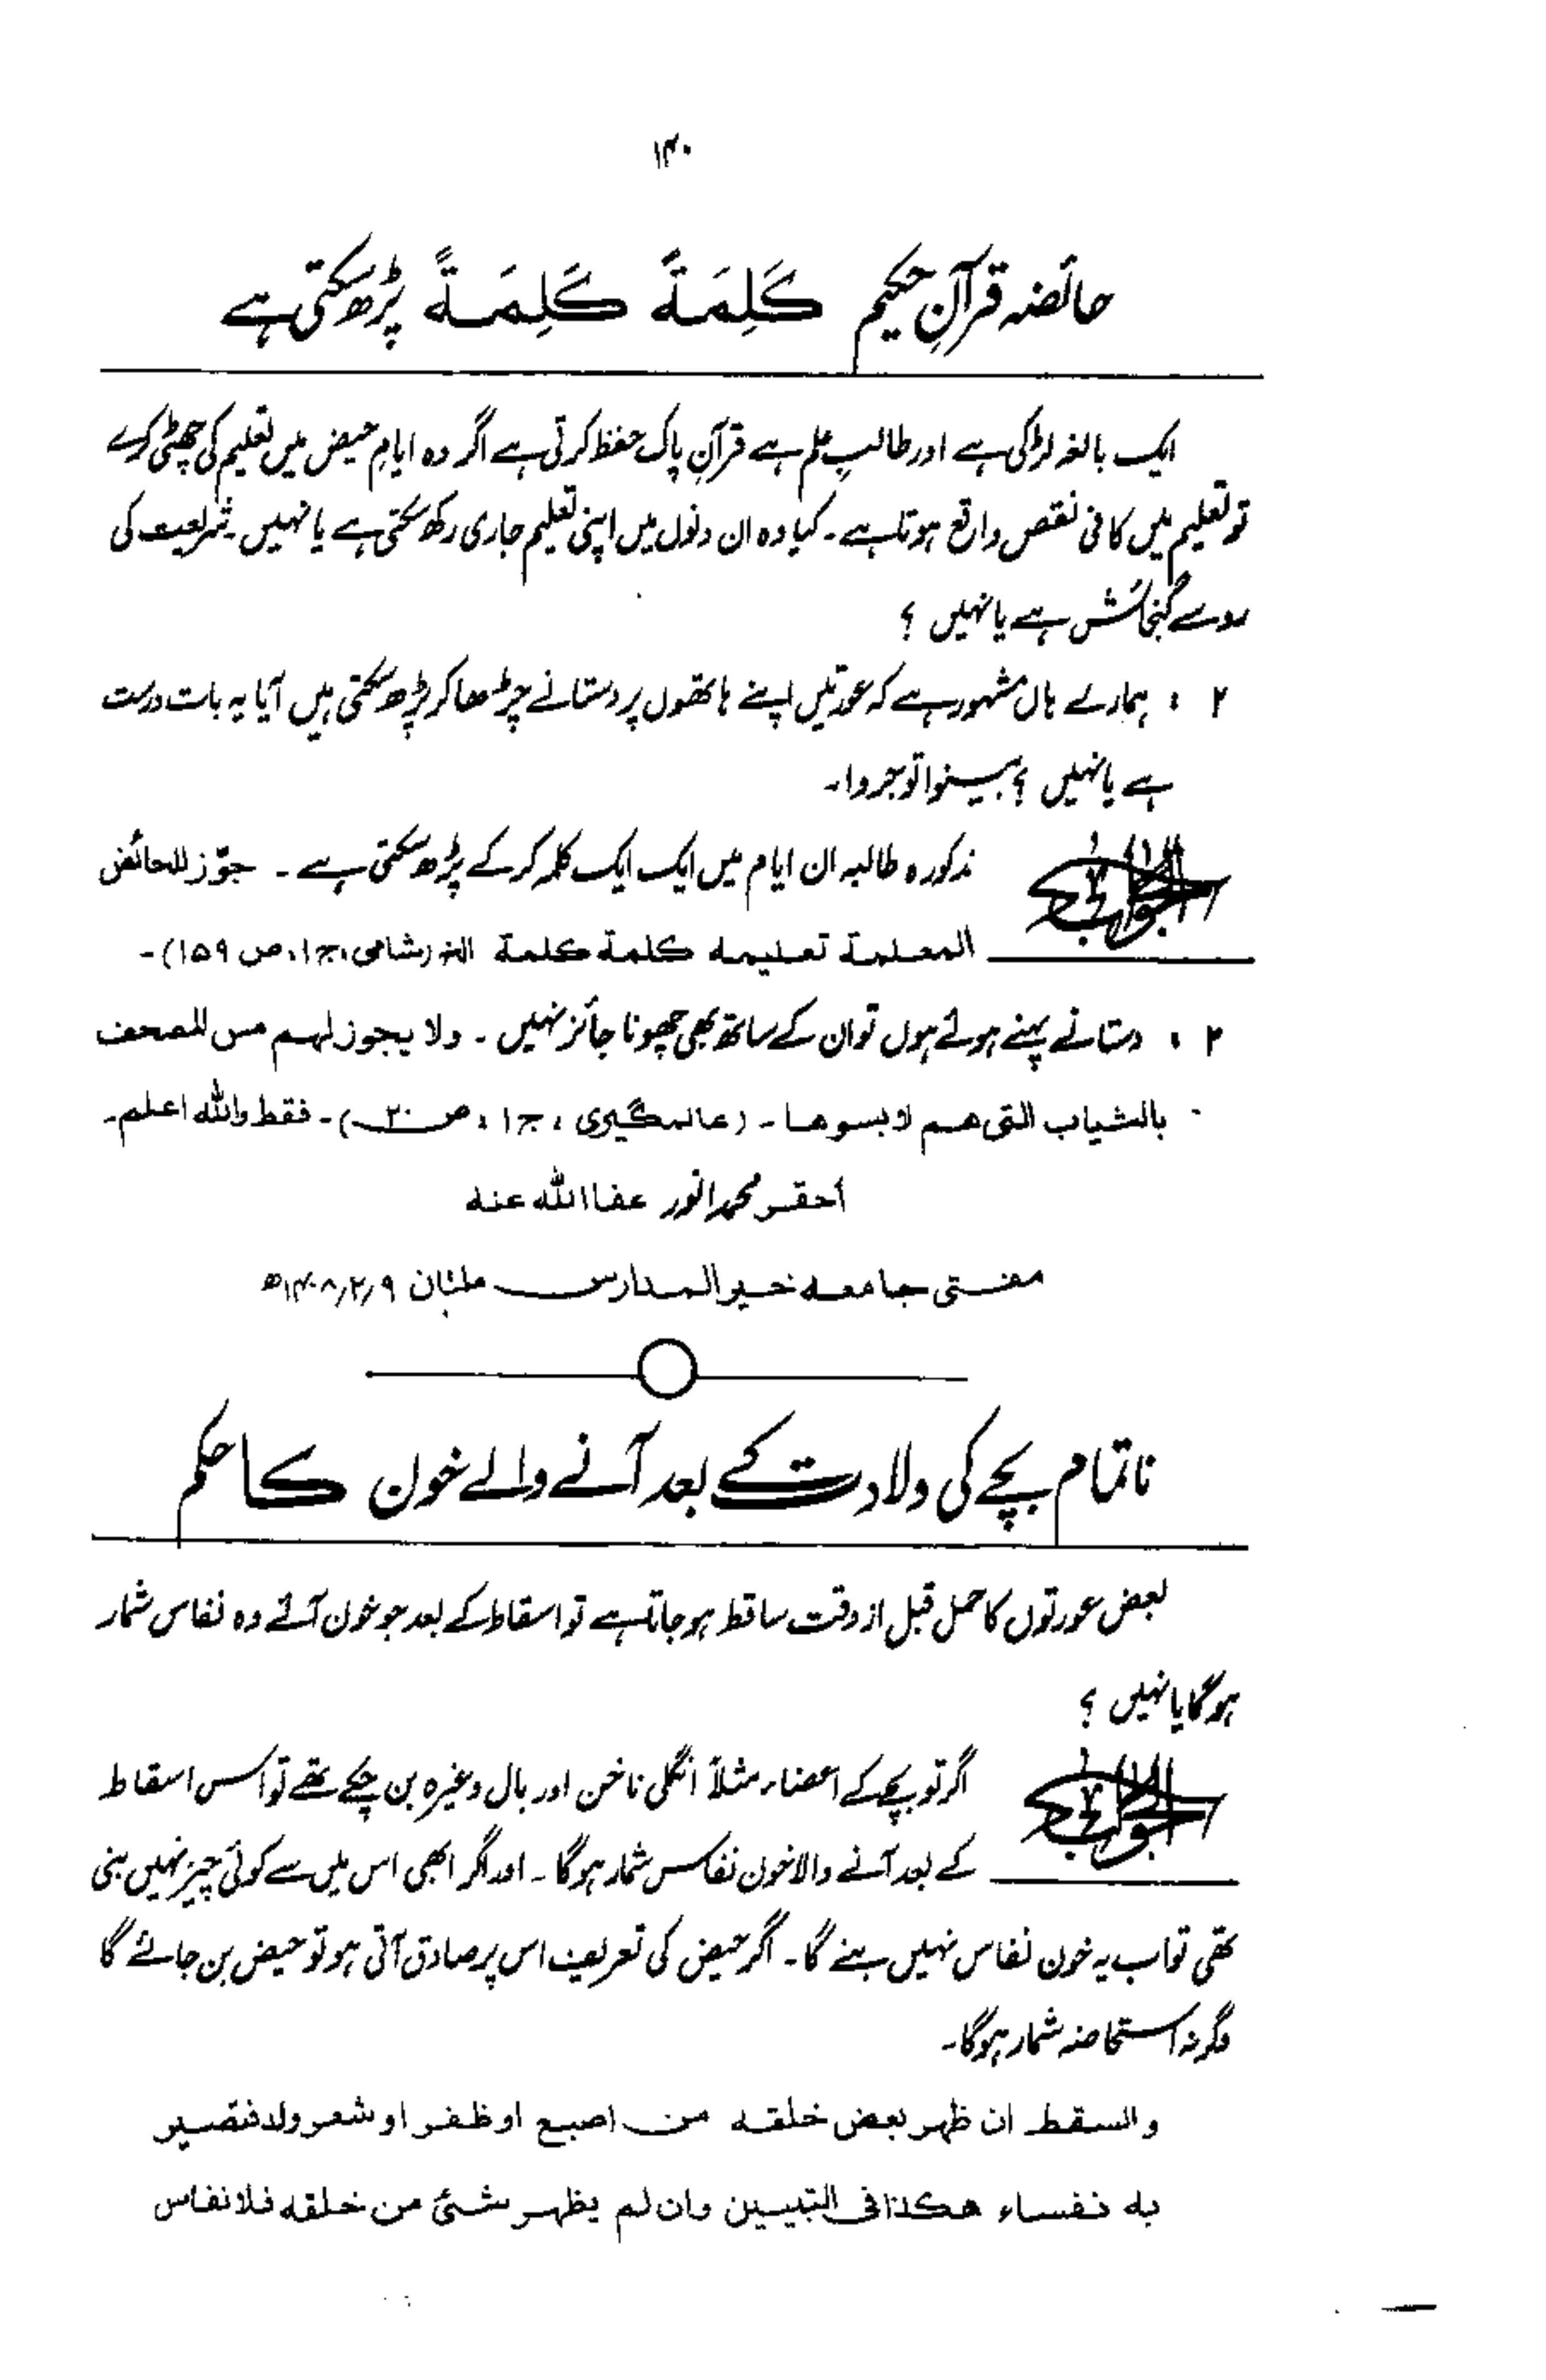 ۱۴۰
حائضہ قرآنِ حکیم كَلِمَةً كَلِمَةً پڑھ سکتی ہے
ایک بالغہ لڑکی ہے اور طالبِ علم ہے قرآنِ پاک حفظ کرتی ہے اگر وہ ایامِ حیض میں تعلیم کی چھٹی کرے
تو تعلیم میں کافی نقص واقع ہوتا ہے۔ کیا وہ ان دنوں میں اپنی تعلیم جاری رکھ سکتی ہے یا نہیں۔ شریعت کی
رو سے گنجائش ہے یا نہیں ؟
۲ : ہمارے ہاں مشہور ہے کہ عورتیں اپنے ہاتھوں پر دستانے چڑھا کر پڑھ سکتی ہیں آیا یہ بات درست
ہے یا نہیں ؟ بینوا توجروا۔
الجواب مذکورہ طالبہ ان ایام میں ایک ایک کلمہ کرکے پڑھ سکتی ہے ۔ جوّز للحائض
المعلمة تعلیمه كلمة كلمة الخ (شامی، ج۱، ص ۱۵۹)۔
۲ : دستانے پہنے ہوئے ہوں تو ان کے ساتھ بھی چھونا جائز نہیں ۔ ولا یجوز لہم مس المصحف
بالثیاب التی هم لابسوها ۔ (عالمگیری ، ج۱ ، ص ۲۰)۔ فقط واللہ اعلم۔
احقر محمد انور عفا اللہ عنہ
مفتی جامعہ خیر المدارس ملتان ۱۴۰۸/۲/۹ھ
ناتمام بچے کی ولادت کے بعد آنے والے خون کا حکم
بعض عورتوں کا حمل قبل از وقت ساقط ہو جاتا ہے تو اسقاط کے بعد جو خون آئے وہ نفاس شمار
ہوگا یا نہیں ؟
الجواب اگر تو بچے کے اعضاء مثلاً انگلی ناخن اور بال وغیرہ بن چکے تھے تو اس اسقاط
کے بعد آنے والا خون نفاس شمار ہوگا ۔ اور اگر ابھی اس میں سے کوئی چیز نہیں بنی
تھی تو اب یہ خون نفاس نہیں بنے گا۔ اگر حیض کی تعریف اس پر صادق آتی ہو تو حیض بن جائے گا
وگرنہ استحاضہ شمار ہوگا۔
والسقط ان ظهر بعض خلقه من اصبع او ظفر او شعر ولد فتصیر
به نفساء هكذا فی التبیین وان لم یظهر شئ من خلقه فلا نفاس